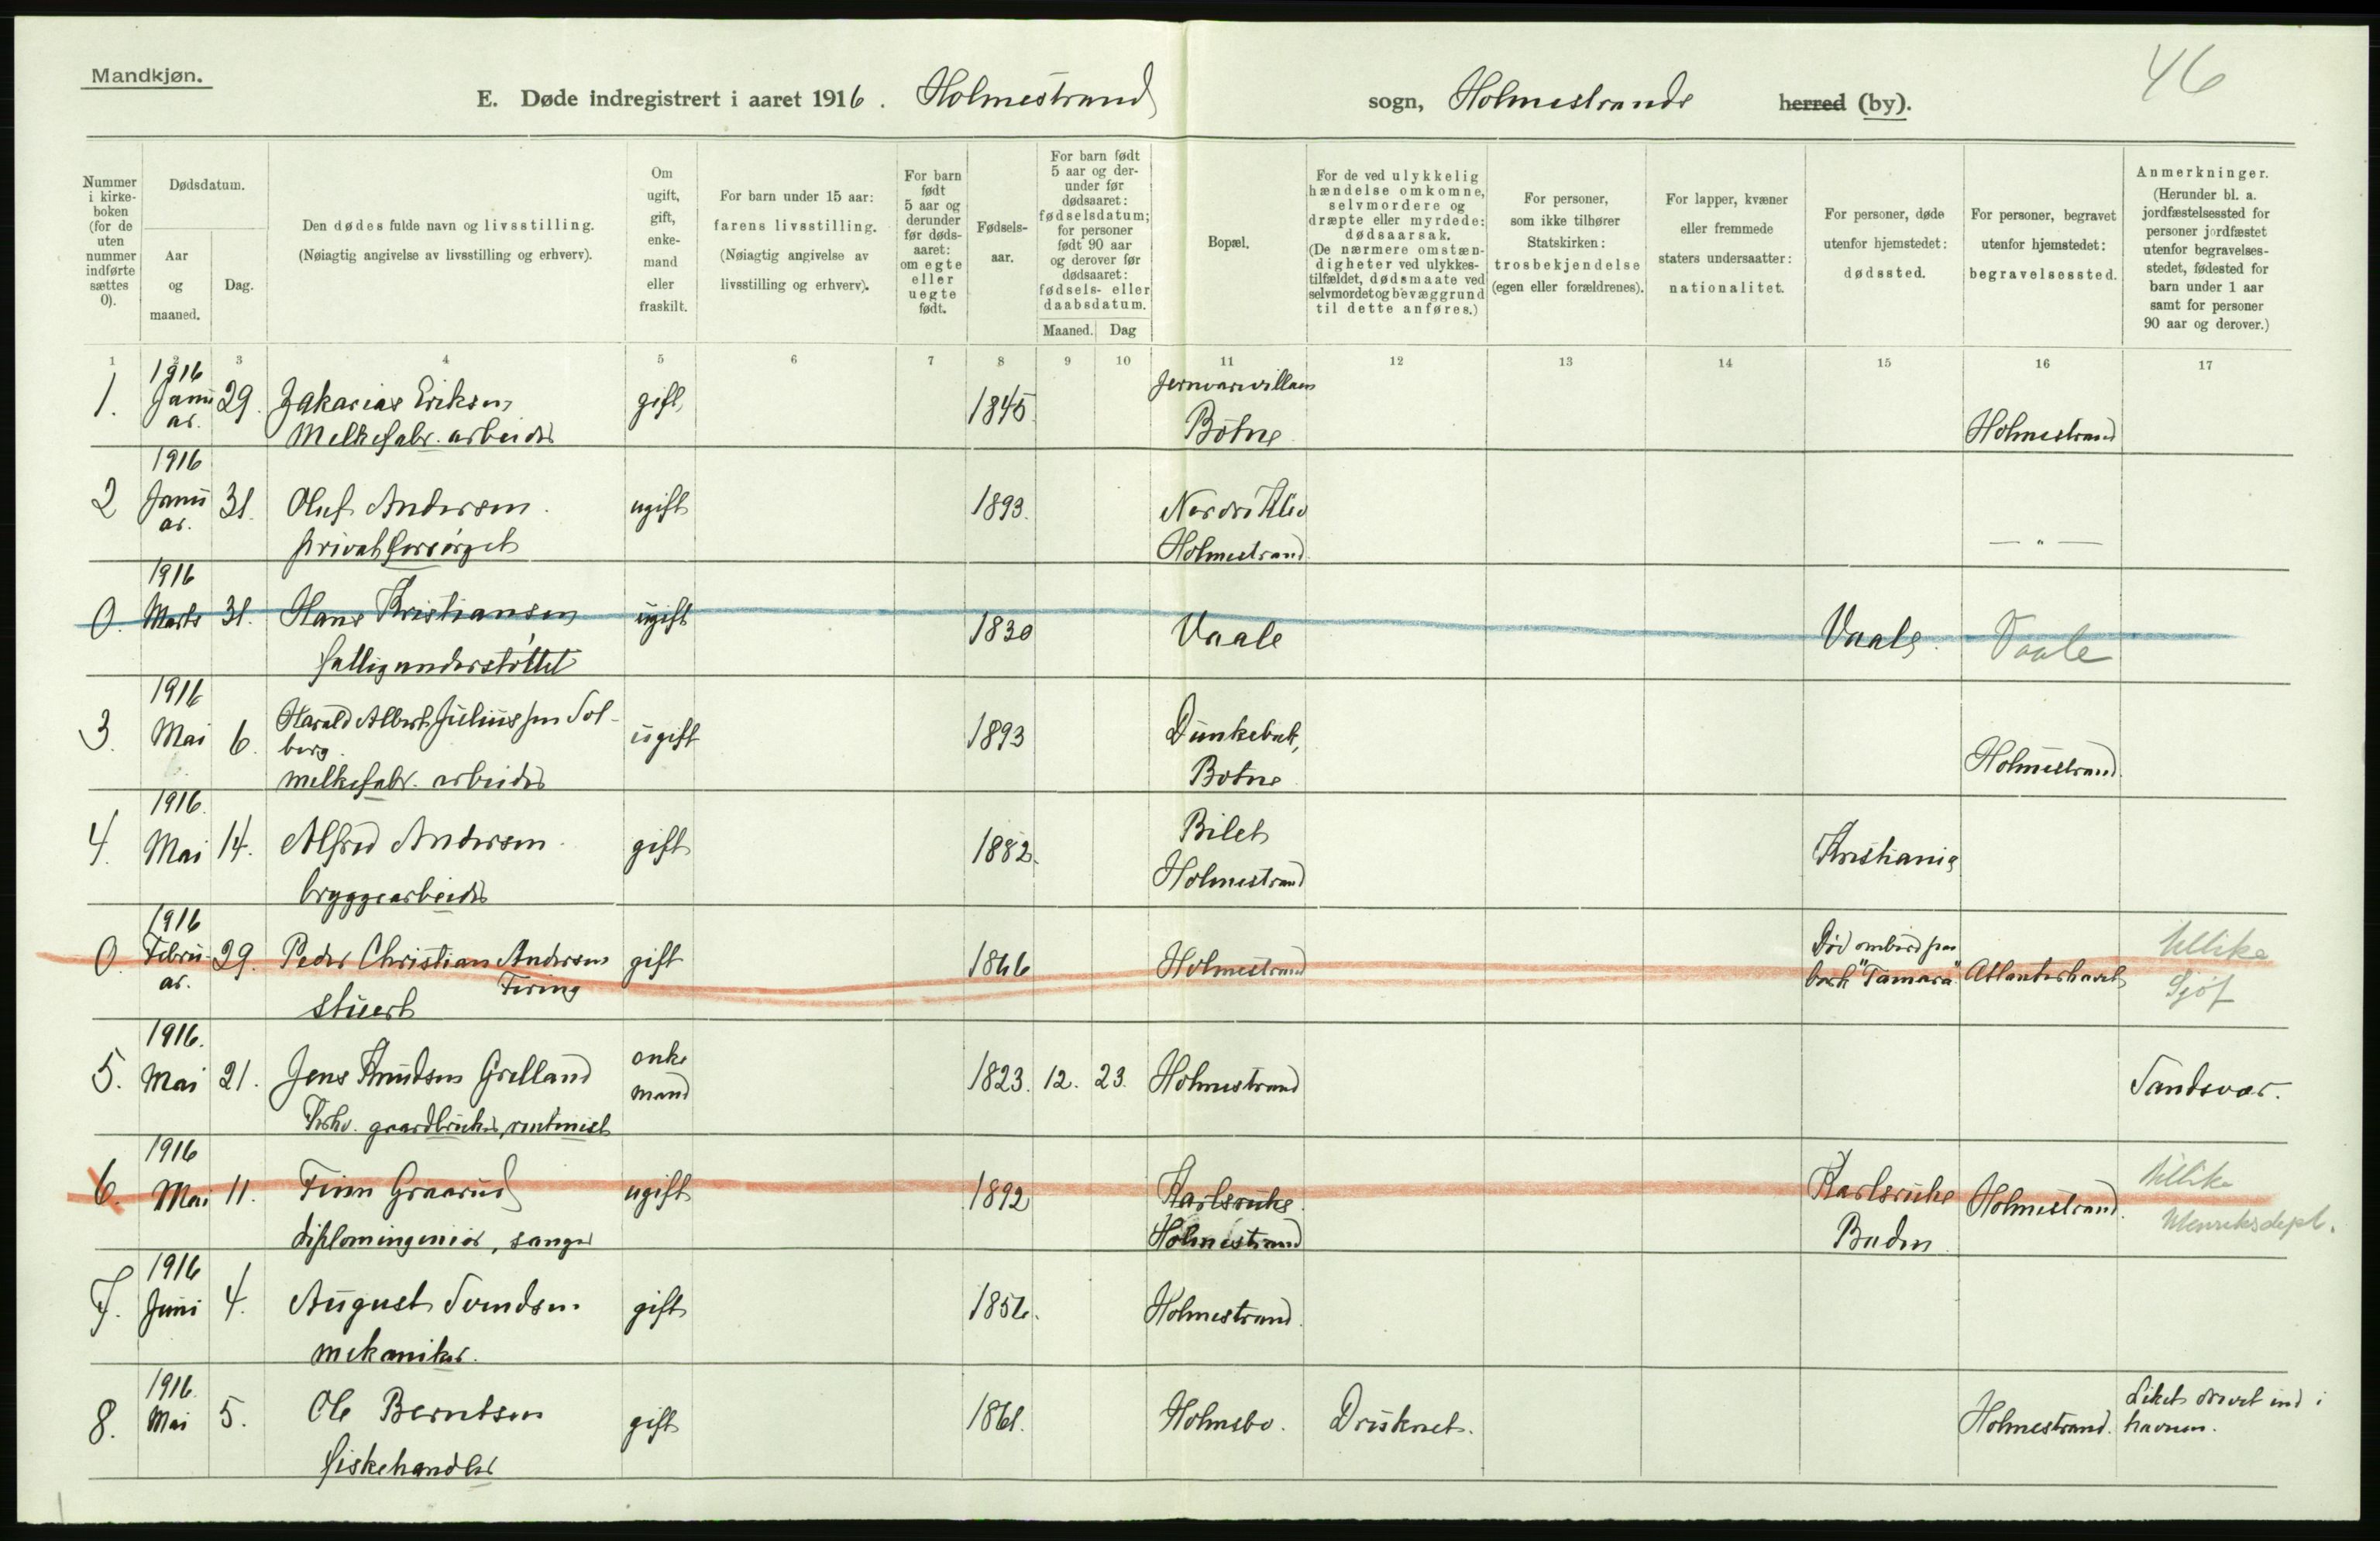 Mandkjøn.
46
E. Døde indregistrert i aaret 1916. Holmestrand sogn, Holmestrands herred (by).
Nummer i kirkeboken (for de uten nummer indførte sættes 0).
Dødsdatum.
Aar og maaned.
Dag.
Den dødes fulde navn og livsstilling. (Nøiagtig angivelse av livsstilling og erhverv).
Om ugift, gift, enkemand eller fraskilt.
For barn under 15 aar: farens livsstilling. (Nøiagtig angivelse av livsstilling og erhverv).
For barn født 5 aar og derunder før dødsaaret: om egte eller uegte født.
Fødselsaar.
For barn født 5 aar og derunder før dødsaaret: fødselsdatum; for personer født 90 aar og derover før dødsaaret: fødsels- eller daabsdatum.
Maaned. Dag
Bopæl.
For de ved ulykkelig hændelse omkomne, selvmordere og dræpte eller myrdede: dødsaarsak. (De nærmere omstændigheter ved ulykkestilfældet, dødsmaate ved selvmordet og bevæggrund til dette anføres.)
For personer, som ikke tilhører Statskirken: trosbekjendelse (egen eller forældrenes).
For lapper, kvæner eller fremmede staters undersaatter: nationalitet.
For personer, døde utenfor hjemstedet: dødssted.
For personer, begravet utenfor hjemstedet: begravelsessted.
Anmerkninger. (Herunder bl. a. jordfæstelsessted for personer jordfæstet utenfor begravelsesstedet, fødested for barn under 1 aar samt for personer 90 aar og derover.)
1 2 3 4 5 6 7 8 9 10 11 12 13 14 15 16 17
1. 1916 Januar. 29. Zakarias Eriksen gift 1845 Botne Holmestrand
Melkefabr. arbeider
2 1916 Januar. 31. Oluf Andersen ugift 1893. Nordre Klev Holmestrand — " —
privat forsørget
0. 1916 Marts 31. Hans Kristiansen ugift 1830 Vaale Vaale. Vaale
fattigunderstøttet
3. 1916 Mai 6. Harald Albert Juliussen Solberg. ugift 1893 Dunkebæk, Botne Holmestrand.
melkefabr. arbeider
4. 1916. Mai 14. Alfred Andersen gift 1882. Bilet Holmestrand Kristiania
bryggearbeider
0. 1916 Februar. 29. Peder Christian Andersen Fering gift 1866 Holmestrand Død ombord paa bark "Tamara" Atlanterhavet Utlika Sjöf
stuert
5. 1916. Mai 21. Jens Knudsen Grelland enkemand 1823. 12. 23. Holmestrand Sandsvær.
Forhv. gaardbruker, rentenist
6. 1916 Mai 11. Finn Graarud ugift 1892 Karlsruhe Holmestrand Karlsruhe Baden Holmestrand. Utlika Utenriksdept.
diplomingeniør, sanger
7. 1916 Juni 4. August Svendsen gift 1856. Holmestrand.
mekaniker.
8. 1916. Mai 5. Ole Berntsen gift 1861. Holmsbo. Drúknet. Holmestrand. Liket drevet ind i havnen.
fiskehandler